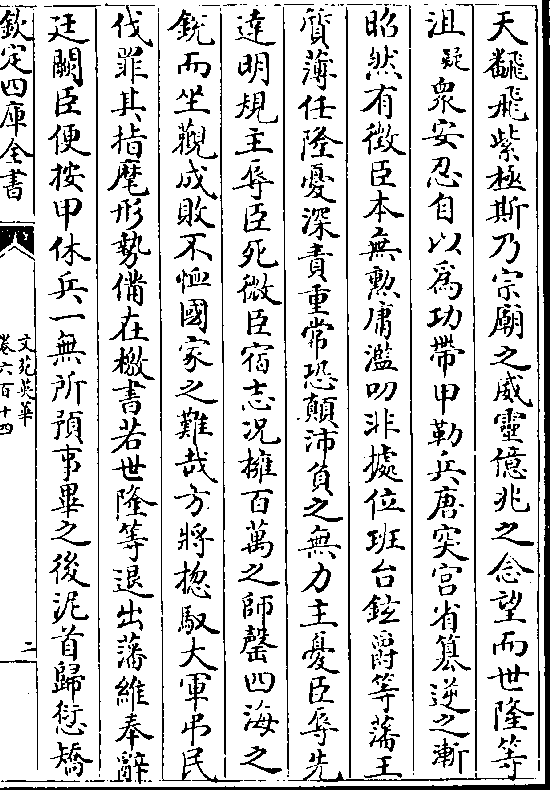 天飜飛紫極斯乃宗廟之威靈億兆之念望而世隆等
沮疑衆安忍自以爲功帶甲勒兵唐突宫省簒逆之漸
昭然有徵臣本無勲庸濫叨非據位班台鉉爵等藩王
質薄任隆憂深責重常恐顛沛負之無力主憂臣辱先
達明規主辱臣死微臣宿志况擁百萬之師罄四海之
銳而坐觀成敗不恤國家之難哉方將揔馭大軍弔民
伐罪其指麾形勢備在檄書若世隆等退出藩維奉辭
廷闕臣便按甲休兵一無所預事畢之後泥首歸愆矯
欽定四庫全書
文苑英華
卷六百十四
二